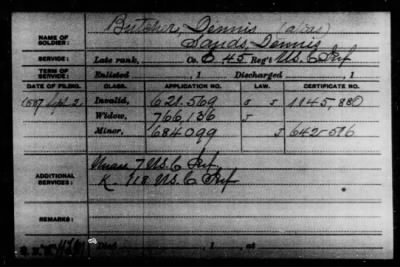 NAME OF SOLDIER: Butcher, Dennis (alias)
Sands, Dennis
SERVICE: Late rank, Co. E 45 Reg't U.S.C. Inf
TERM OF SERVICE: Enlisted , 1 Discharged , 1
DATE OF FILING. CLASS. APPLICATION NO. LAW. CERTIFICATE NO.
1887 Sept. 2 Invalid, 621.569 1145,880
Widow, 766,136
Minor, 684099 S 642-596
ADDITIONAL SERVICES: 7 U.S.C Inf
K 118 U.S.C Inf
REMARKS:
Died , 1 , at